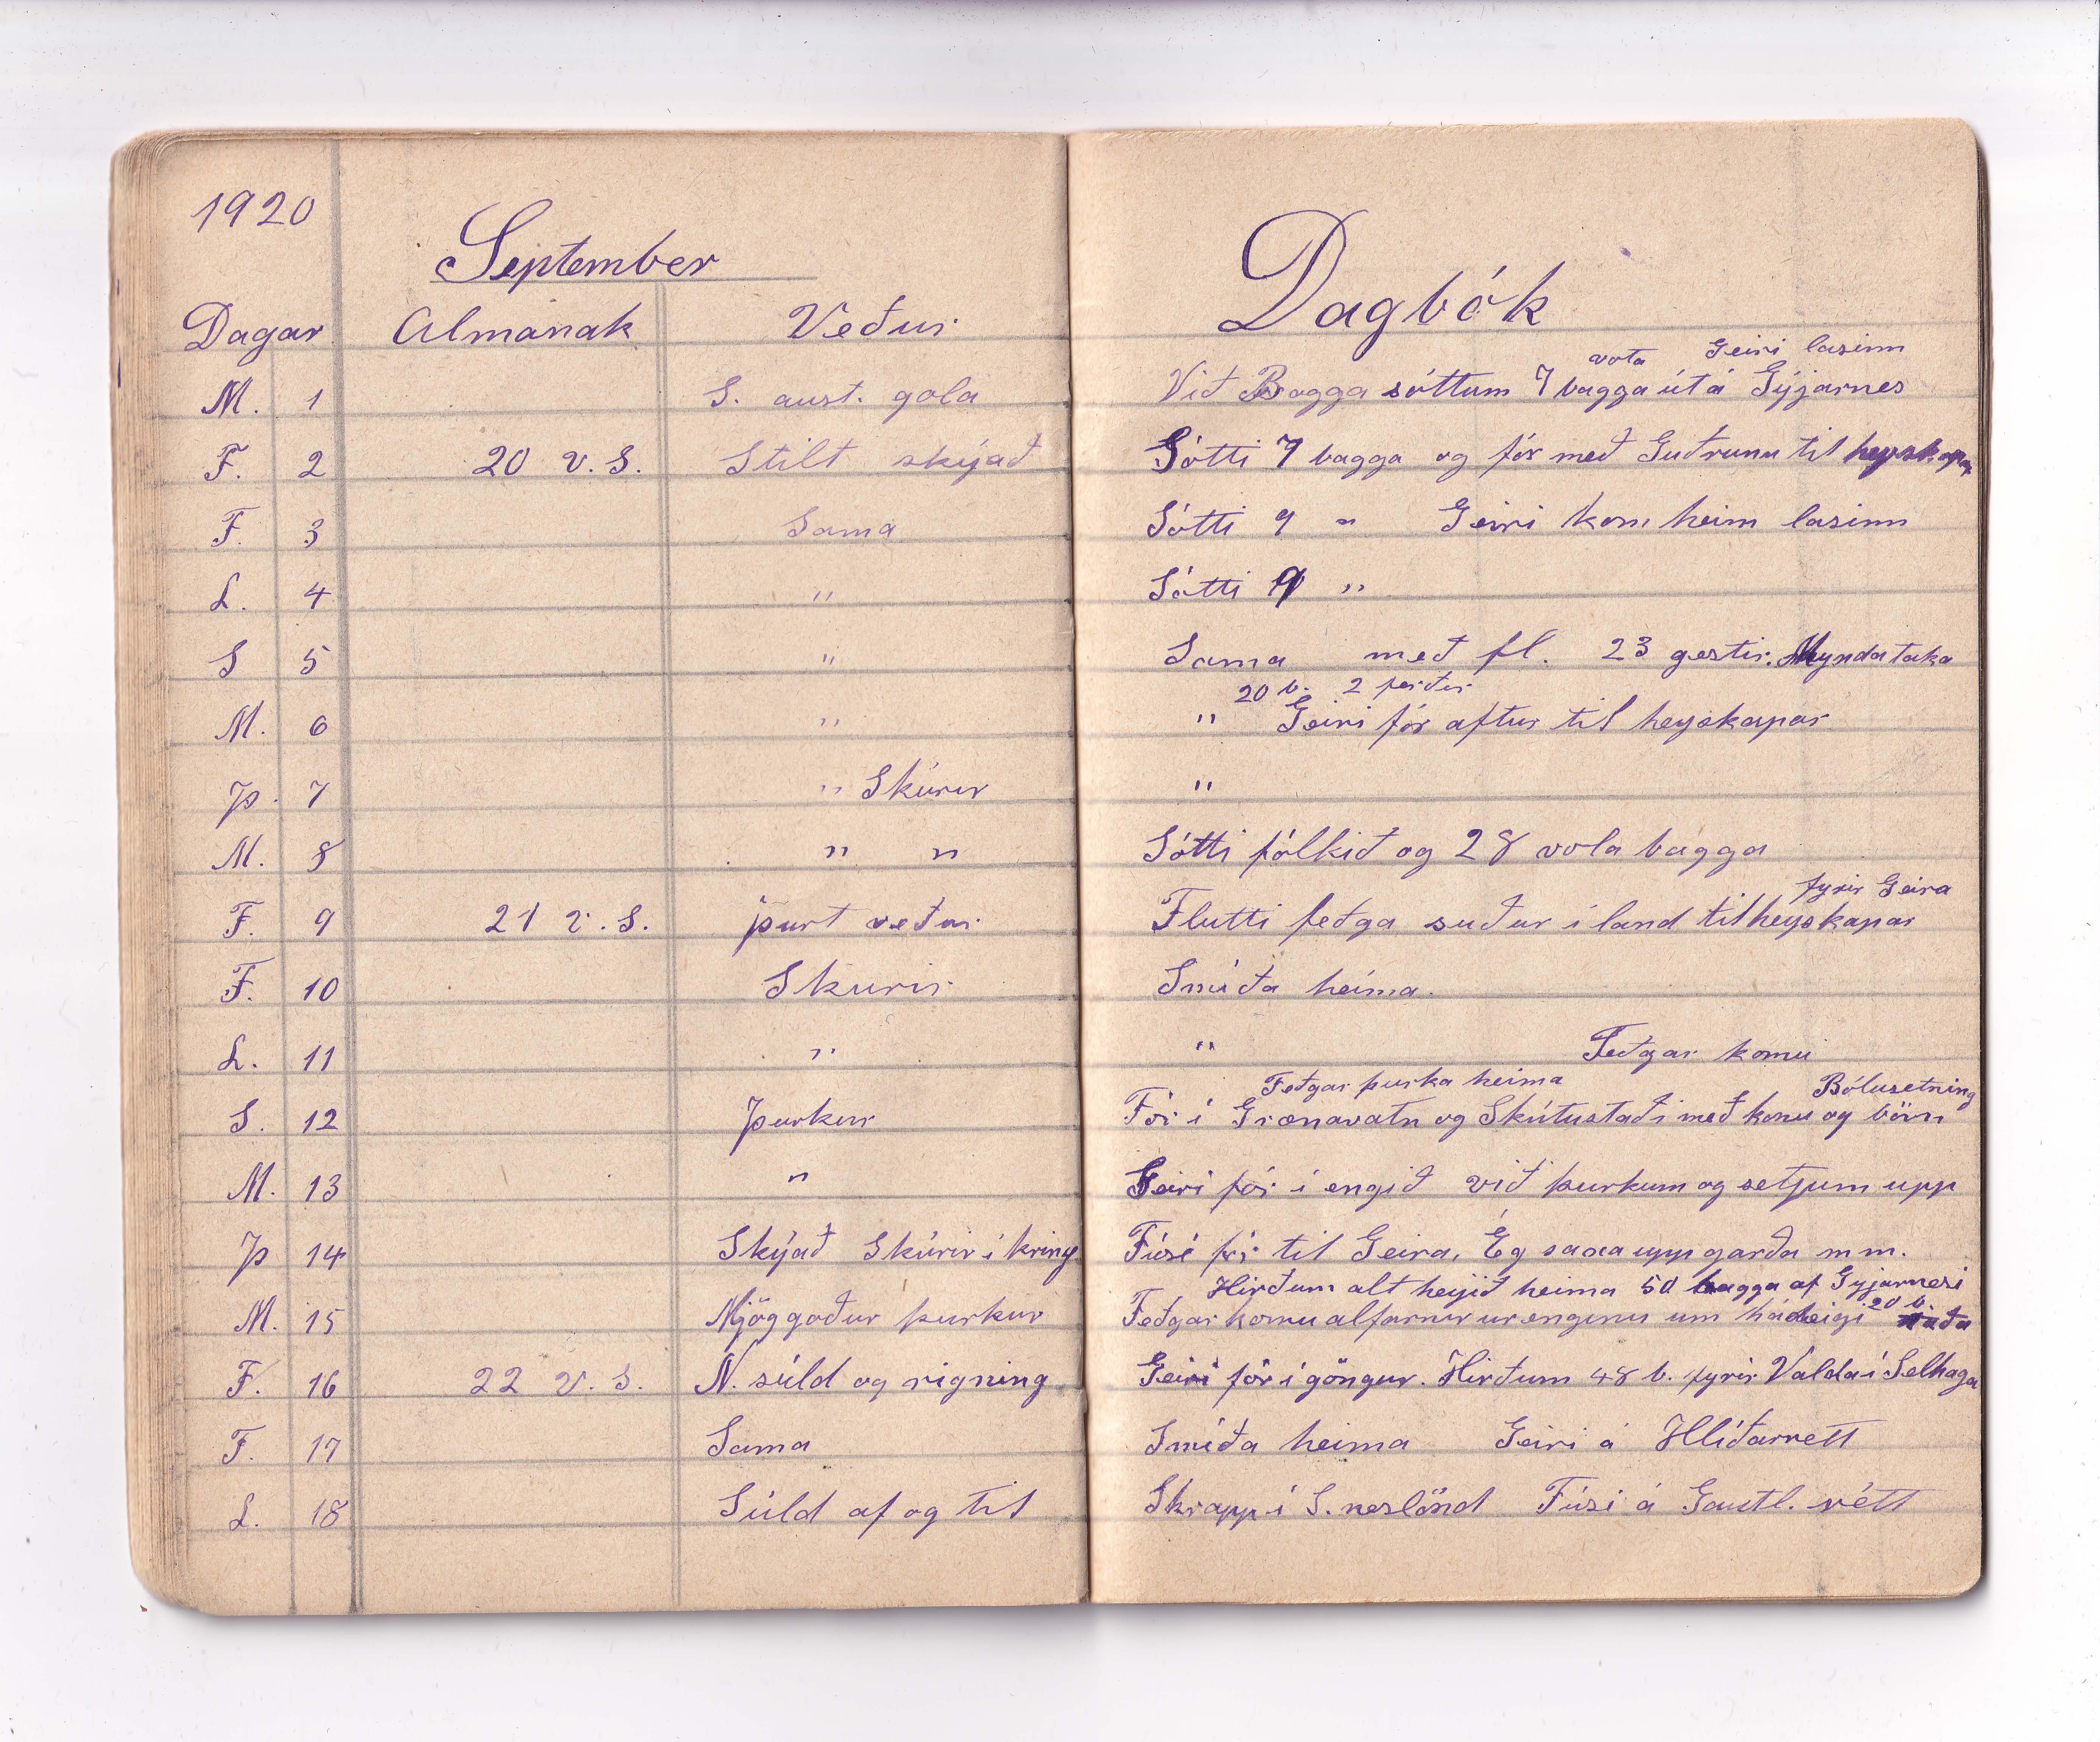 1920
September
Dagar Almanak Veður
M. 1 S. aust. gola
F. 2 20 v. S. Stilt skýjað
F. 3 Sama
L. 4 "
S 5 "
M. 6 "
Þ. 7 " Skúrir
M. 8 " "
F. 9 21 v. S. Þurt veður
F. 10 Skurir
L. 11 "
S. 12 Þurkur
M. 13 "
Þ 14 Skýað Skúrir í kring
M. 15 Mjög goður þurkur
F. 16 22 v. S. N. súld og rigning
F. 17 Sama
L. 18 Súld af og til
Dagbók
vota Geiri lasinn
Við Bagga sóttum 7 bagga út á Gýjarnes
Sótti 7 bagga og fór með Guðrunu til heyskapar
Sótti 9 " Geiri kom heim lasinn
Sótti 9 "
Sama með fl. 23 gestir. Myndataka
20 b. 2 ferðir
" Geiri fór aftur til heyskapar
"
Sótti fólkið og 28 vota bagga
fyrir Geira
Flutti feðga suður í land til heyskapar
Smíða heima.
" Feðgar komu
Feðgar þurka heima Bólusetning
Fór í Grænavatn og Skútustaði með konu og börn
Geiri fór í engið við þurkum og setjum upp
Fúsi fór til Geira, Ég saxa upp garða m m.
Hirðum alt heyið heima 50 bagga af Gyjarnesi
Feðgar komu alfarnir ur enginu um hádeigi 20 b. taða
Geiri fór í göngur. Hirðum 48 b. fyrir Valda í Selhaga
Smíða heima Geiri á Hlíðarrett
Skrapp í S. neslönd Fúsi á Gautl. rétt